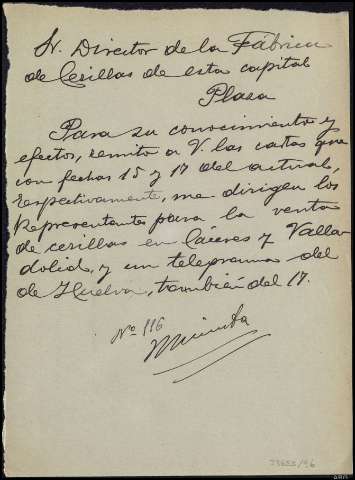 Sr. Director de la Fábrica
de Cerillas de esta capital
Plaza
Para su conocimiento y
efectos, remito a V. las cartas que
con fechas 15 y 17 del actual,
respectivamente, me dirigen los
Representantes para la venta
de cerillas en Cáceres y Valla-
dolid, y un telegrama del
de Huelva, también del 17.
Nº 116
Minuta